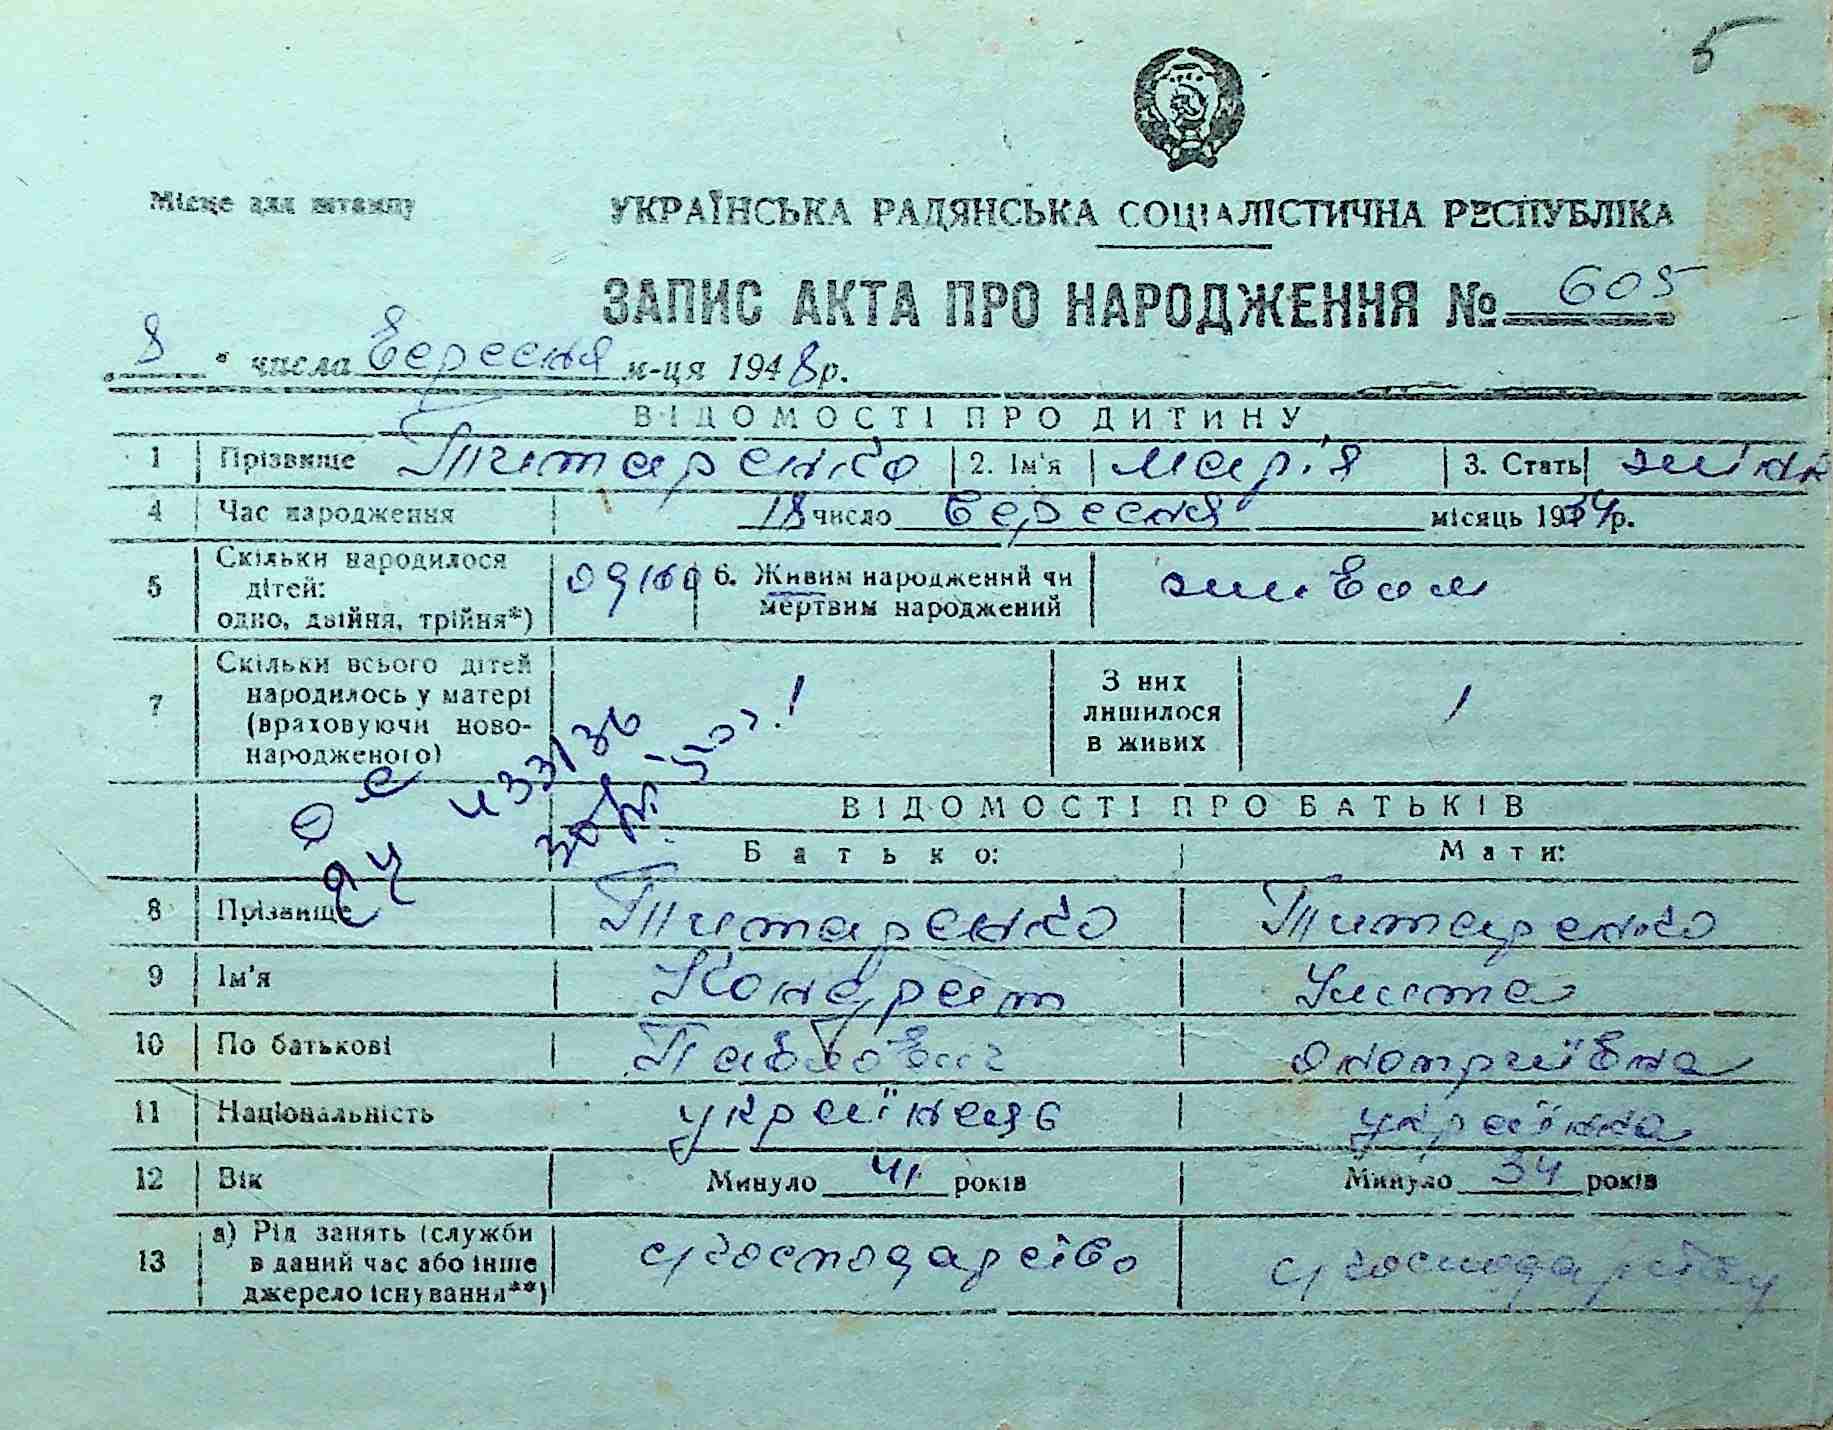 5
Місце для штампу
УКРАЇНСЬКА РАДЯНСЬКА СОЦІАЛІСТИЧНА РЕСПУБЛІКА
ЗАПИС АКТА ПРО НАРОДЖЕННЯ № 605
„ 8 " числа Вересня м-ця 1948 р.
ВІДОМОСТІ ПРО ДИТИНУ
1 Прізвище Титаренко 2. Ім'я Марія 3. Стать
4 Час народження 18 число Вересня місяць 1934 р.
5 Скільки народилося дітей: одно, двійня, трійня*) одно 6. Живим народжений чи мертвим народжений живом
7 Скільки всього дітей народилось у матері (враховуючи новонародженого) З них лишилося в живих 1
ВІДОМОСТІ ПРО БАТЬКІВ
Батько: Мати:
8 Прізвище Титаренко Титаренко
9 Ім'я Кондрат Улита
10 По батькові Павлович Оноприївна
11 Національність українець українка
12 Вік Минуло 41 років Минуло 34 років
13 а) Рід занять (служби в даний час або інше джерело існування**) с/господарство с/господарству